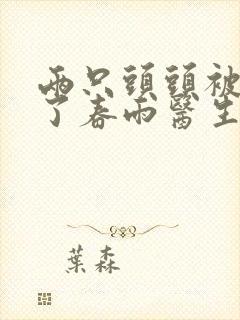 兩只頭頭被
了春雨醫生
葉森